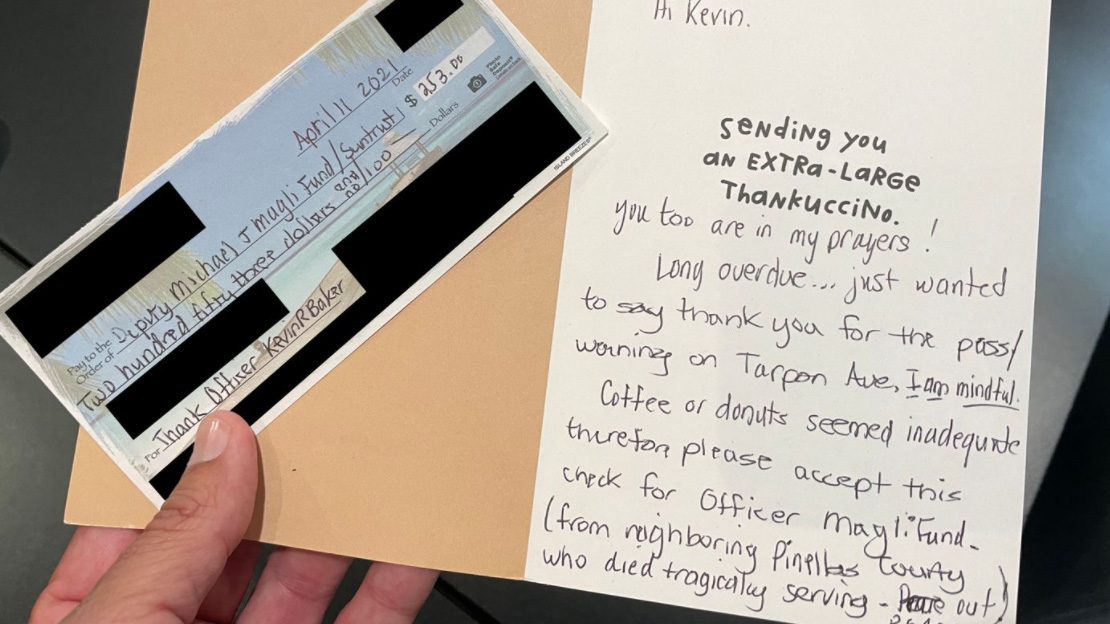 April 11 2021
Date
$ 253.00
Pay to the
Order of Deputy Michael J Magli Fund/Suntrust
Two hundred fifty three dollars and no/100 Dollars
ISLAND BREEZES
For Thank Officer Kevin R Baker
Hi Kevin.
SENDING YOU
AN EXTRA-LARGE
THANKUCCINO.
you too are in my prayers!
Long overdue... just wanted
to say thank you for the pass/
warning on Tarpon Ave, I am mindful.
Coffee or donuts seemed inadequate
therefore please accept this
check for Officer Magli Fund.
(from neighboring Pinellas County
who died tragically serving - out)